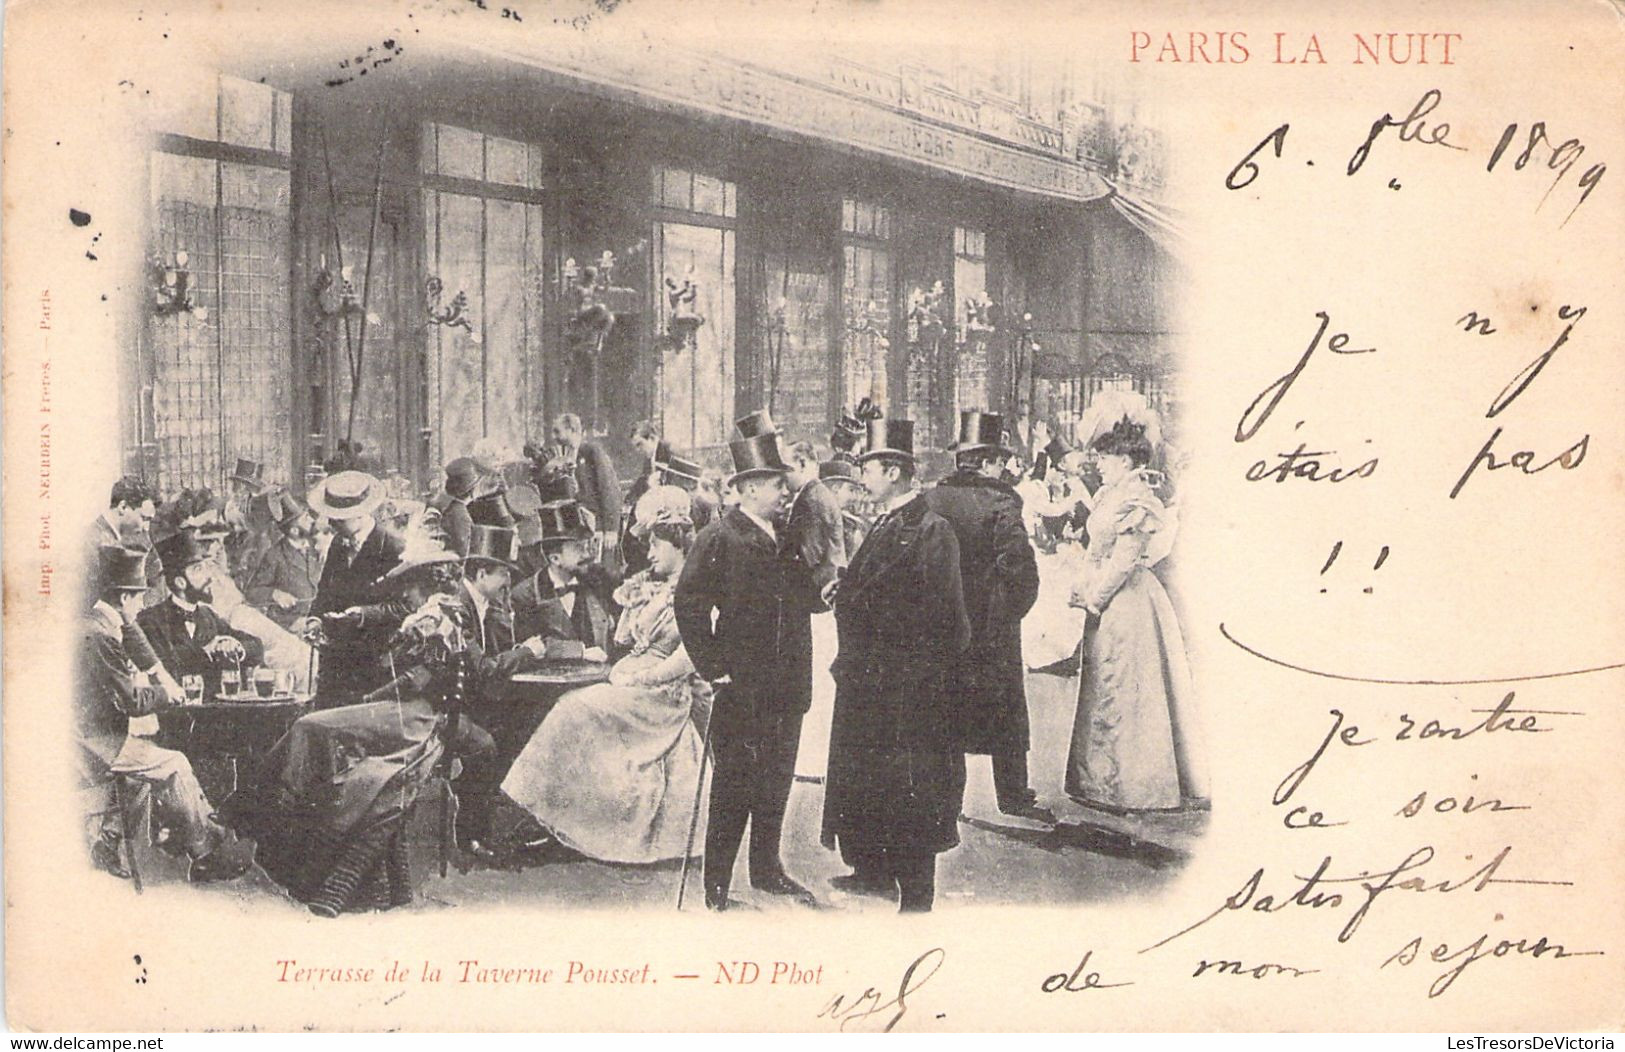 PARIS LA NUIT
6. 8bre 1899
Je n'y
étais pas
!!
Je rentre
ce soir
satisfait
de mon séjour
Terrasse de la Taverne Pousset. — ND Phot
Imp. Phot. NEURDEIN Frères. — Paris
delcampe.net
LesTresorsDeVictoria